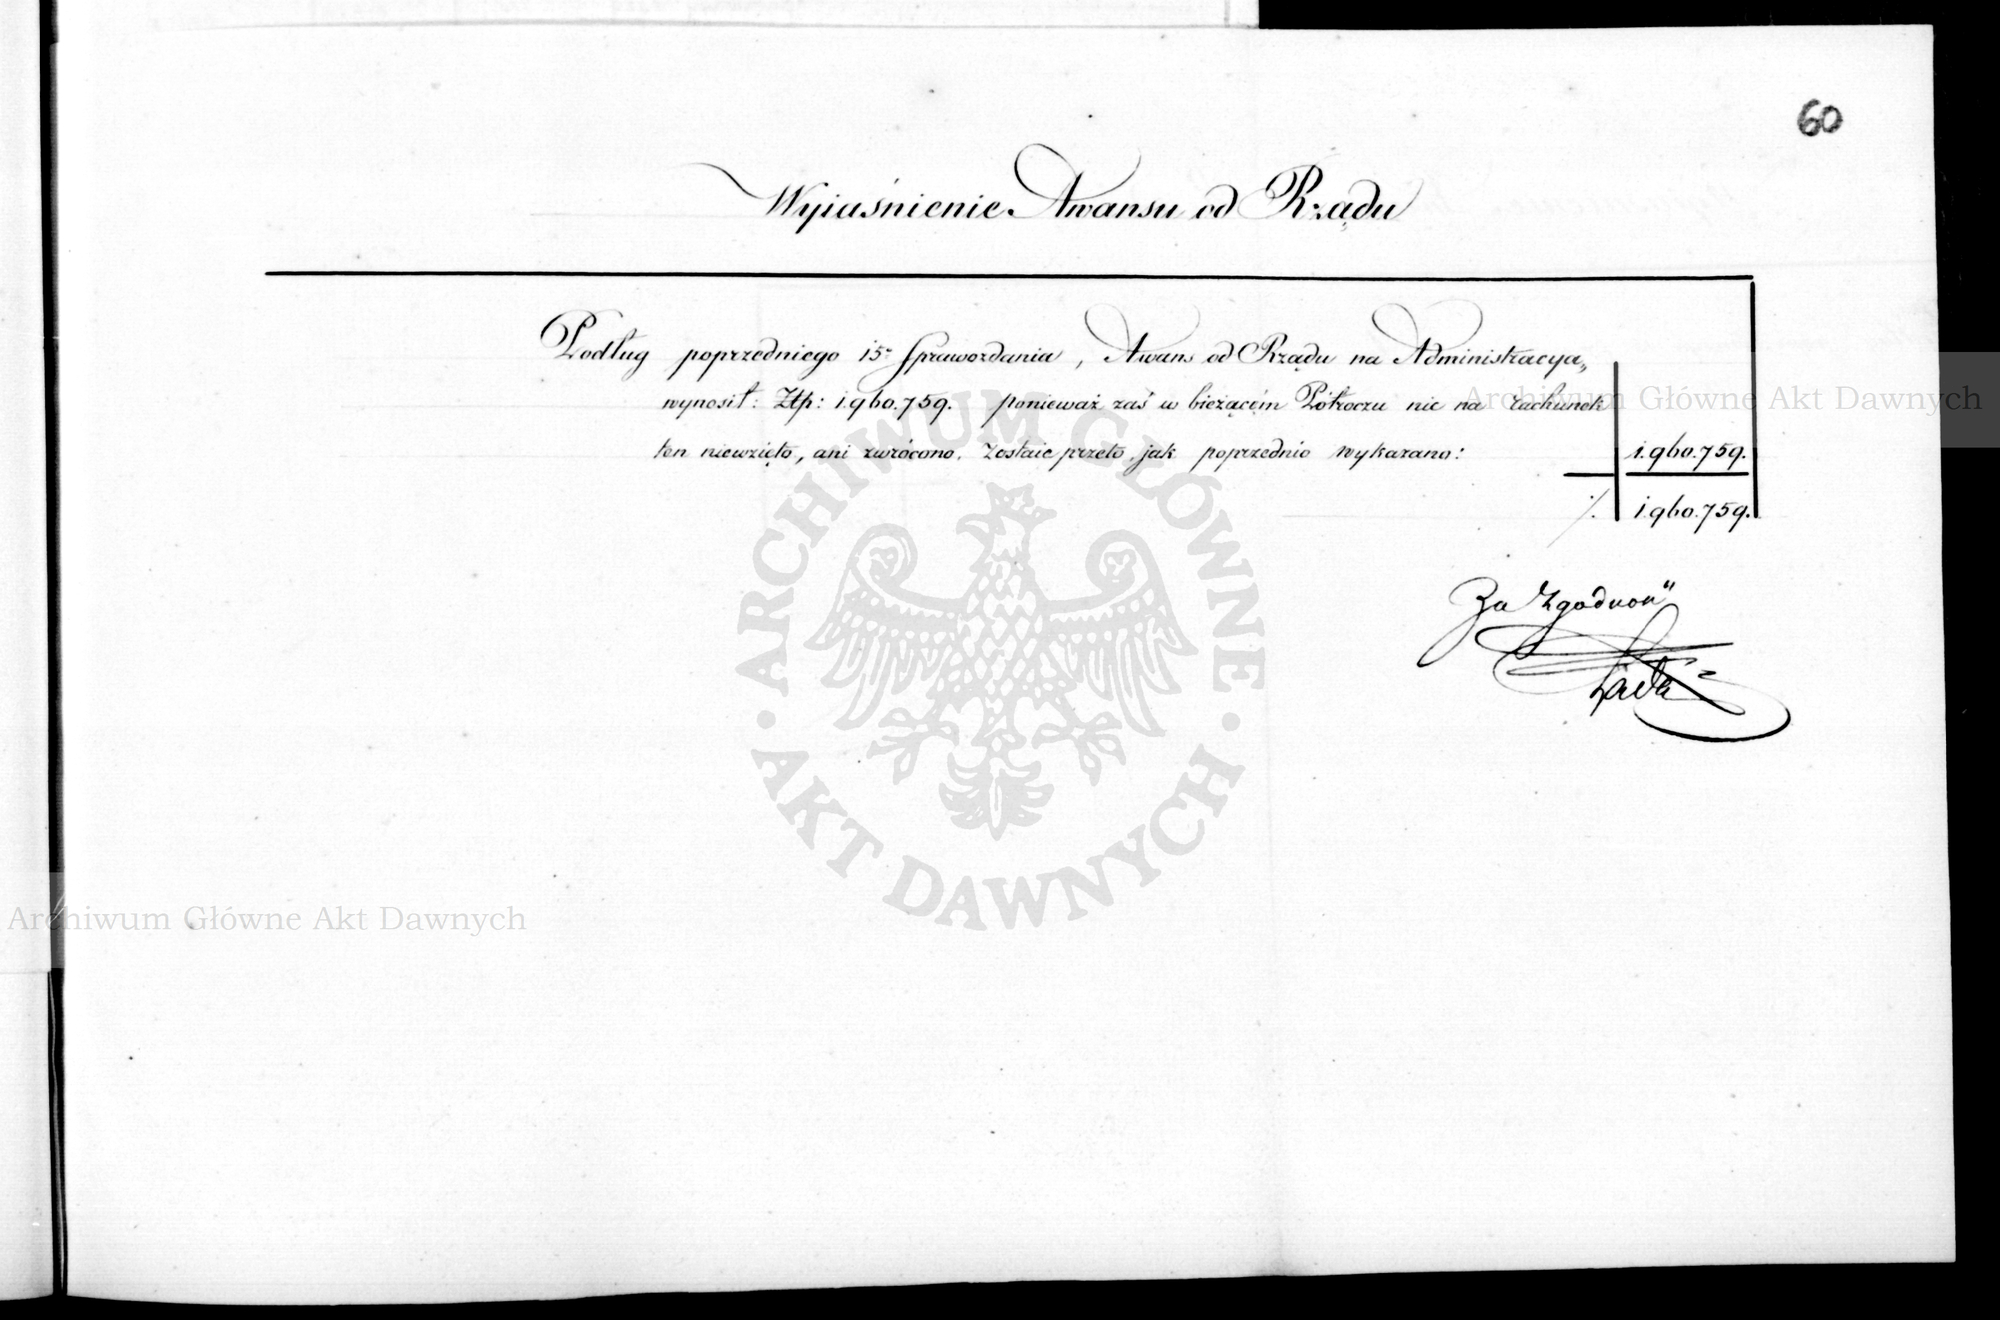 60
Wyiaśnienie Awansu od Rządu
Podług poprzedniego 15º Sprawozdania, Awans od Rządu na Administracya,,
wynosił: Złp: 1.960.759. ponieważ zaś w bieżącém Półroczu nic na rachunek
ten niewzięto, ani zwrócono, zostaie przeto, jak poprzednio wykazano: 1.960.759.
1.960.759.
Za Zgodność
Archiwum Główne Akt Dawnych
ARCHIWUM GŁÓWNE
AKT DAWNYCH
Archiwum Główne Akt Dawnych